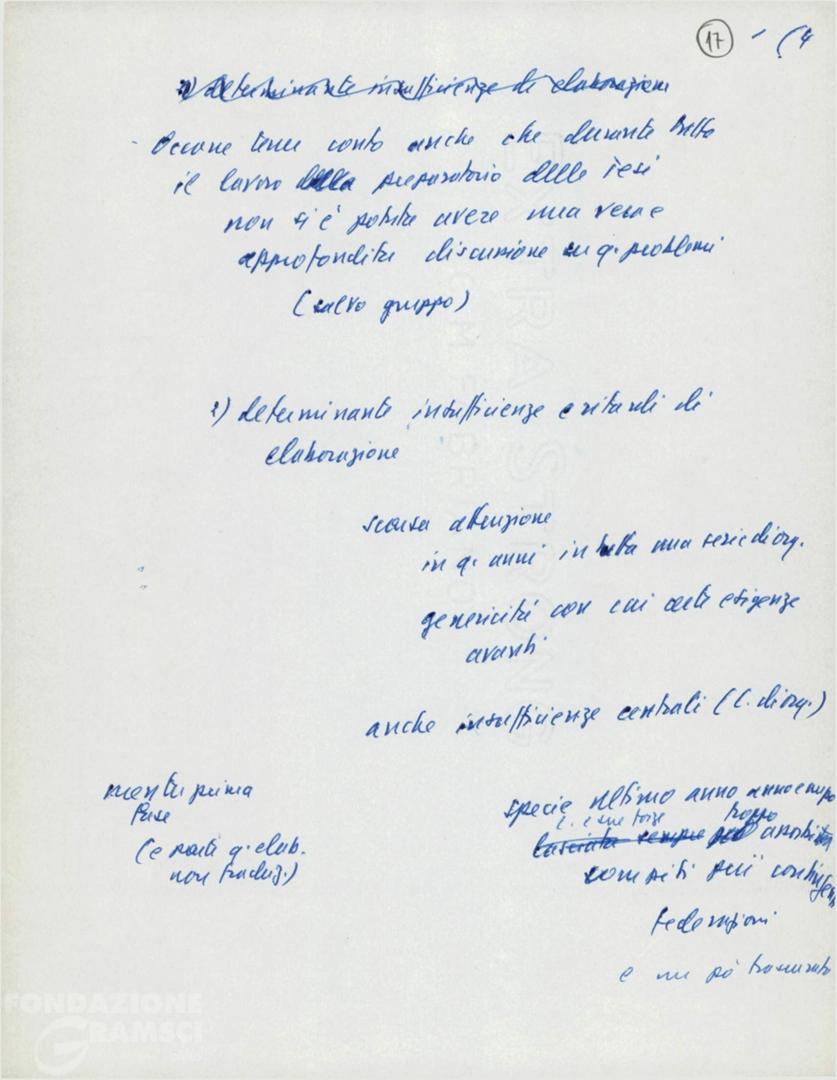 17 - (4
2) determinante insufficienze di elaborazione
- Occorre tener conto anche che durante tutto
il lavoro della preparatorio delle Tesi
non si è potuta avere una vera e
approfondita discussione su q. problemi
(salvo gruppo)
2) determinante insufficienze e ritardi di
elaborazione
scarsa attenzione
in q. anni in tutta una serie di org.
genericità con cui certe esigenze
avanti
anche insufficienze centrali (C. di org.)
mentre prima
fase
(e parti q. elab.
non traduz.)
specie ultimo anno anno e mezzo
C. e sue forze troppo
lasciata sempre più assorbite
compiti più contingenti
federazioni
e un po' trascurato
FONDAZIONE
GRAMSCI